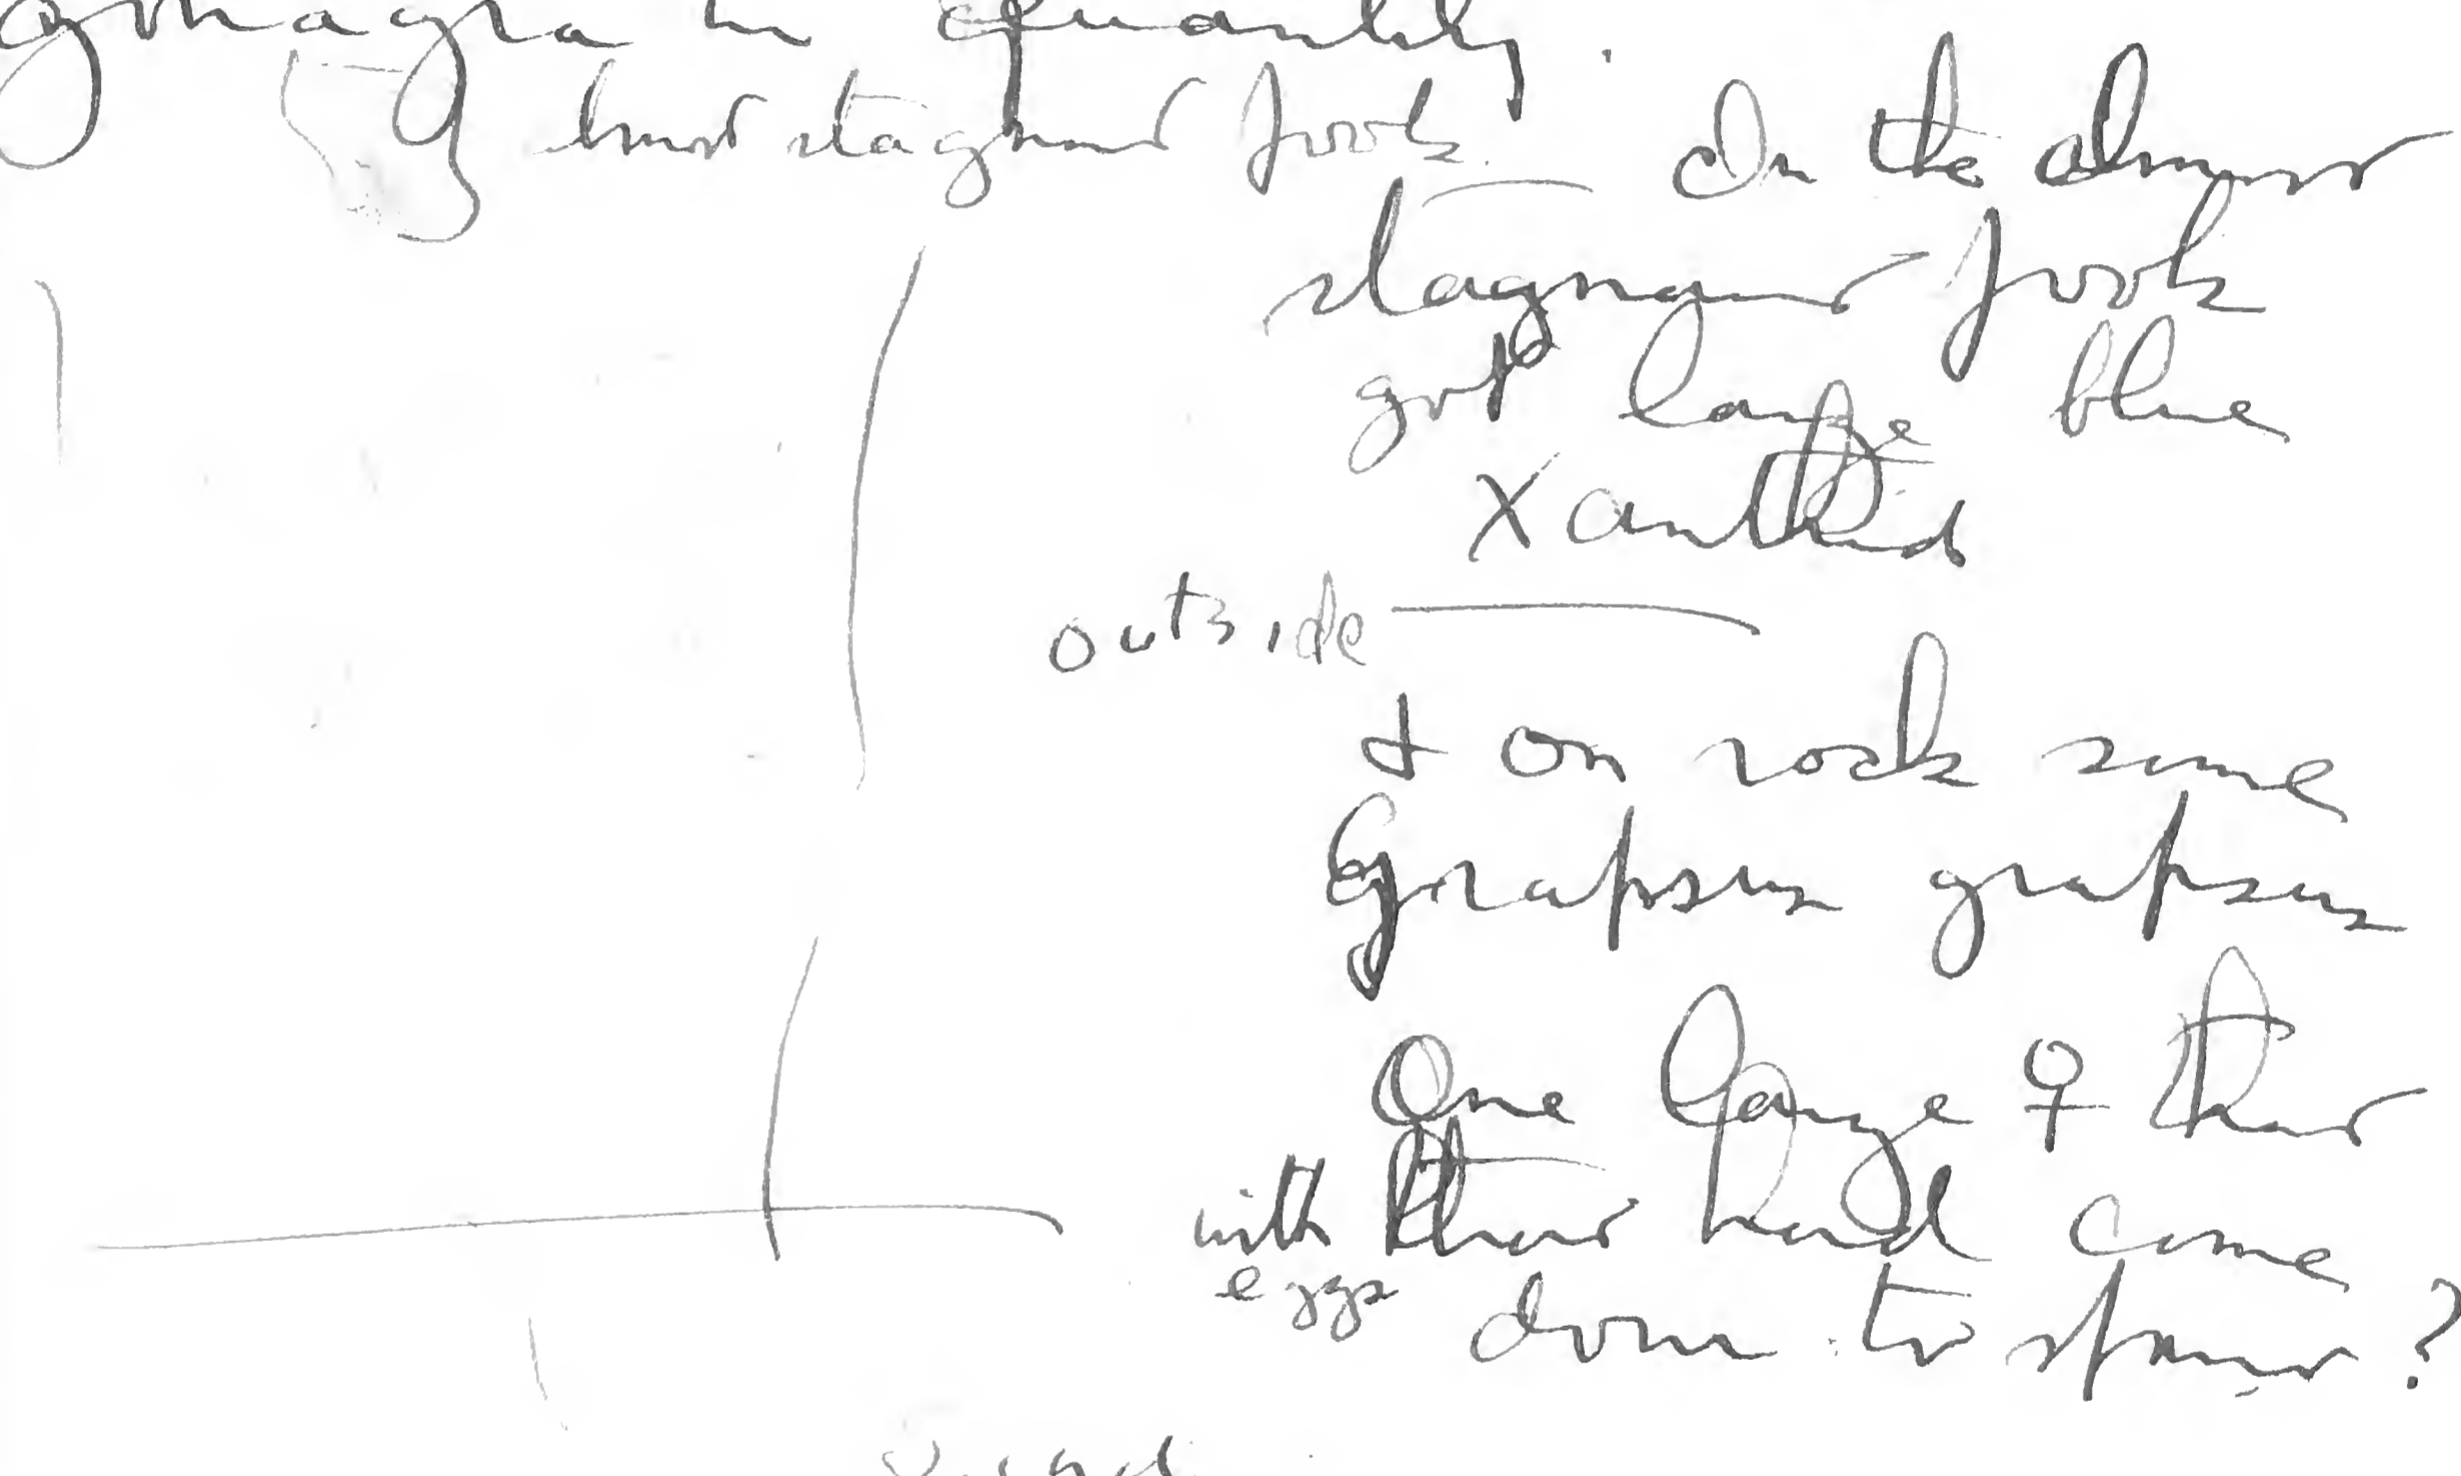 in quantity.
almost stagnant pools
In the almost
stagnant pools
got large blue
Xanthid
outside
& on rock some
Grapsus grapsus
One large ♀ that
with that had come
eggs down to spawn?